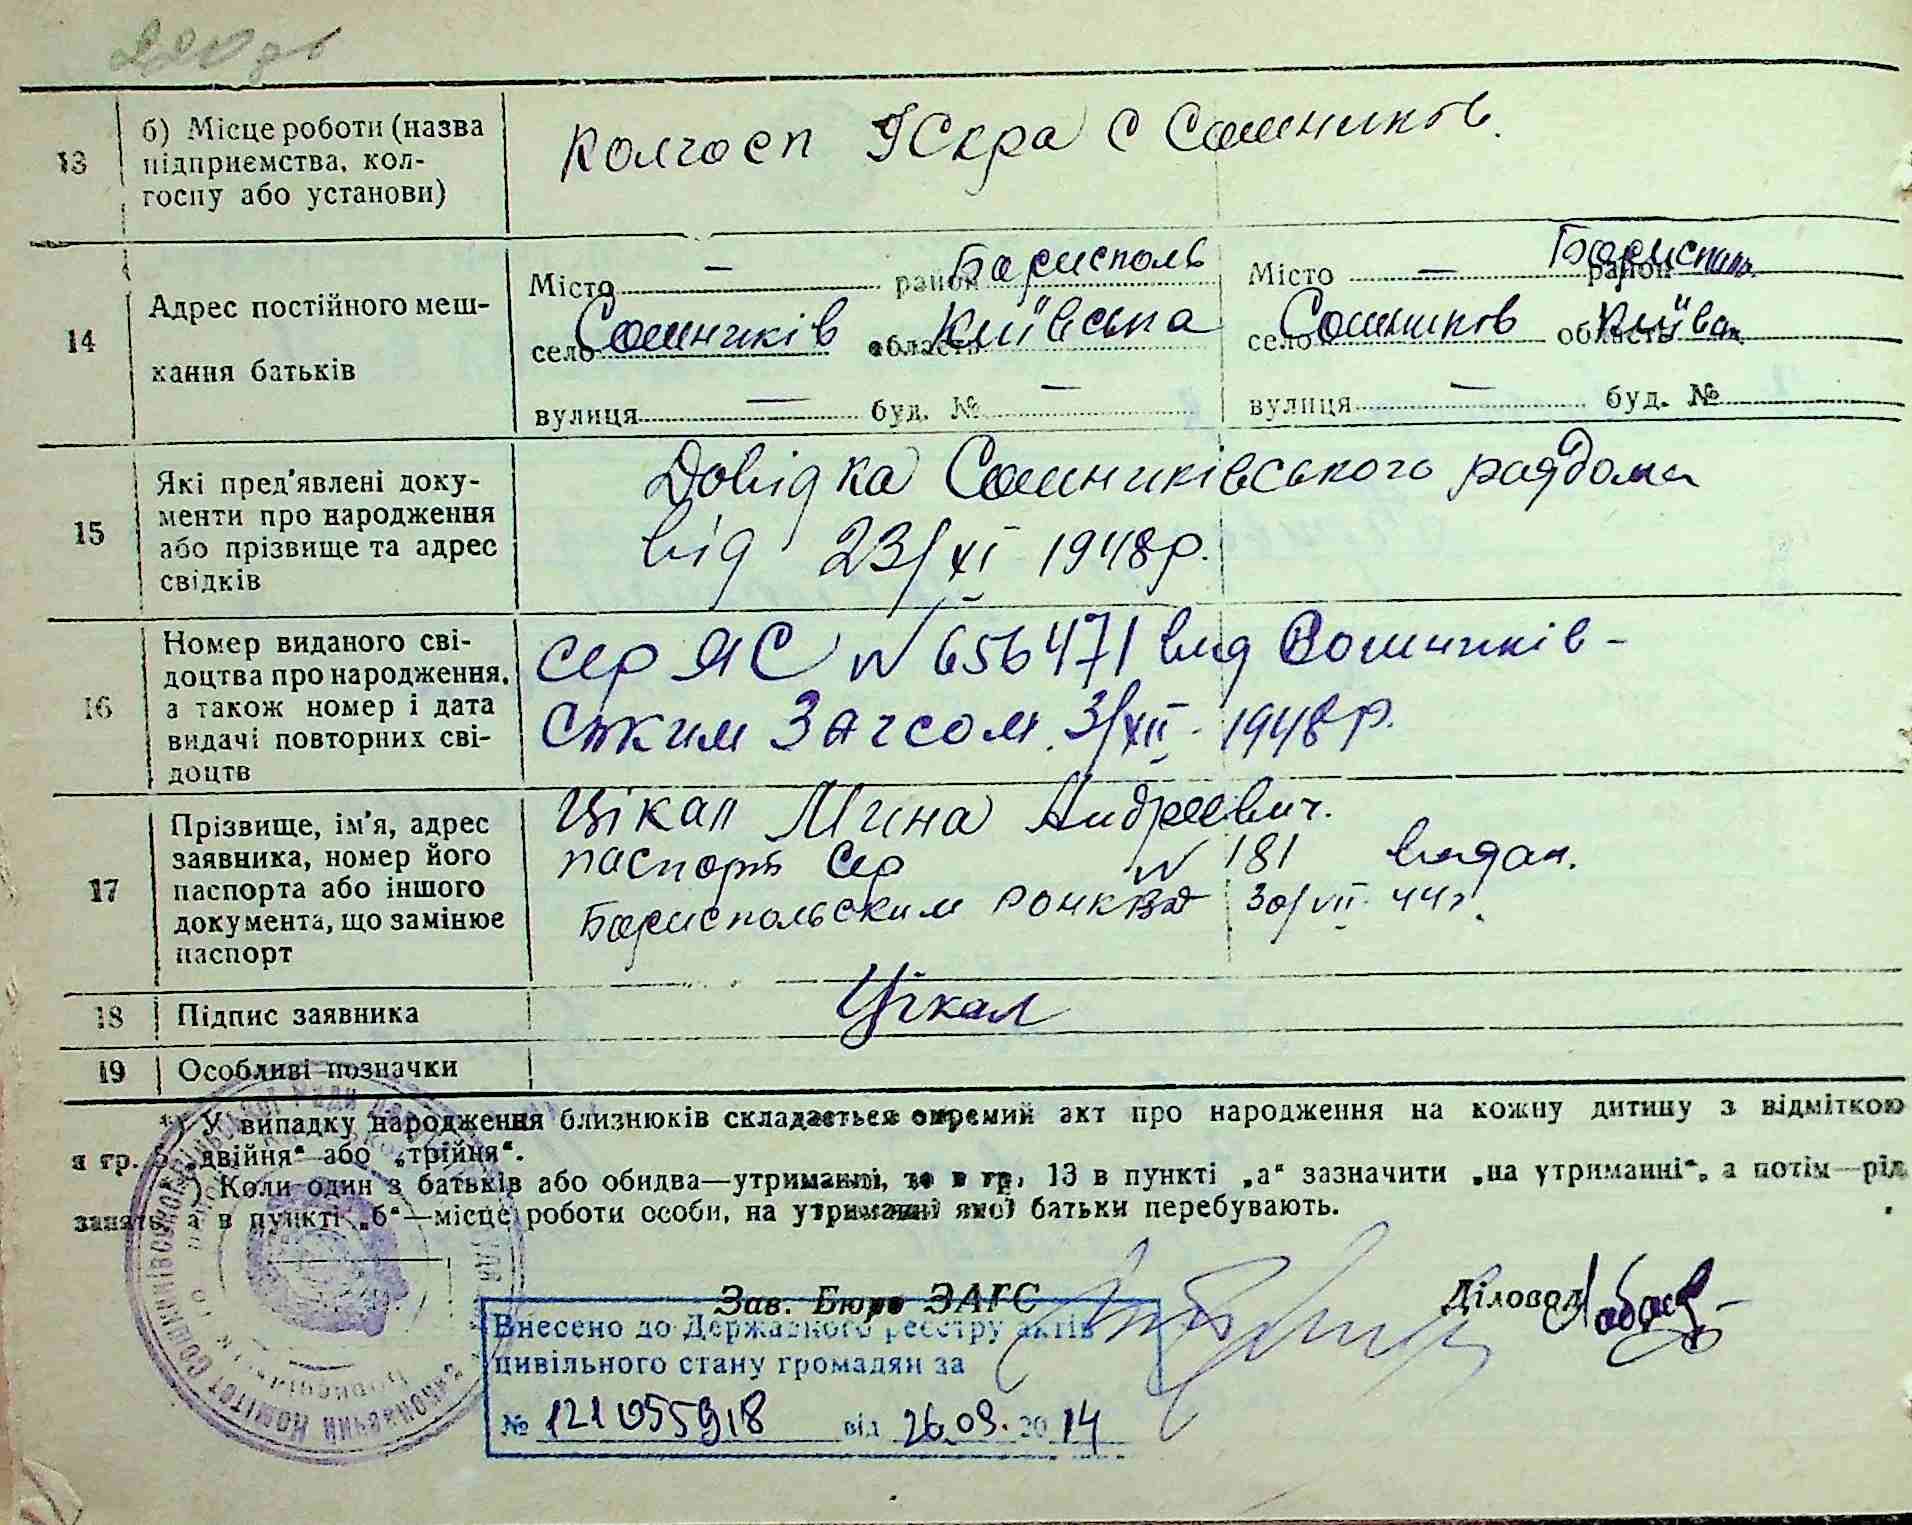 13 б) Місце роботи (назва підприємства, кол-
госпу або установи)
Колгосп Іскра с Сошників.
14 Адрес постійного меш-
кання батьків
Місто — район Бориспіль Місто — район Бориспіль
село Сошників область Київська село Сошников область Київськ
вулиця — буд. № — вулиця — буд. №
15 Які пред'явлені доку-
менти про народження
або прізвище та адрес
свідків
Довідка Сошниківського роддома
від 23/XI 1948р.
16 Номер виданого сві-
доцтва про народження,
а також номер і дата
видачі повторних сві-
доцтв
сер ЯС № 656471 вид Сошників-
ским Загсом 3/XII 1948р.
17 Прізвище, ім'я, адрес
заявника, номер його
паспорта або іншого
документа, що замінює
паспорт
Цікал Мина Андреевич.
паспорт сер № 181 видан.
Бориспольским 30/VII 44г.
18 Підпис заявника
Цікал
19 Особливі позначки
*) У випадку народження близнюків складається окремий акт про народження на кожну дитину з відміткою
в гр. 5 „двійня“ або „трійня“.
) Коли один з батьків або обидва—утриманні, то в гр. 13 в пункті „а“ зазначити „на утриманні“, а потім—рід
занять, а в пункті „б“—місце роботи особи, на утриманні якої батьки перебувають.
Зав. Бюро ЗАГС Діловод
Внесено до Державного реєстру актів
цивільного стану громадян за
№ 121055918 від 26.09.2014